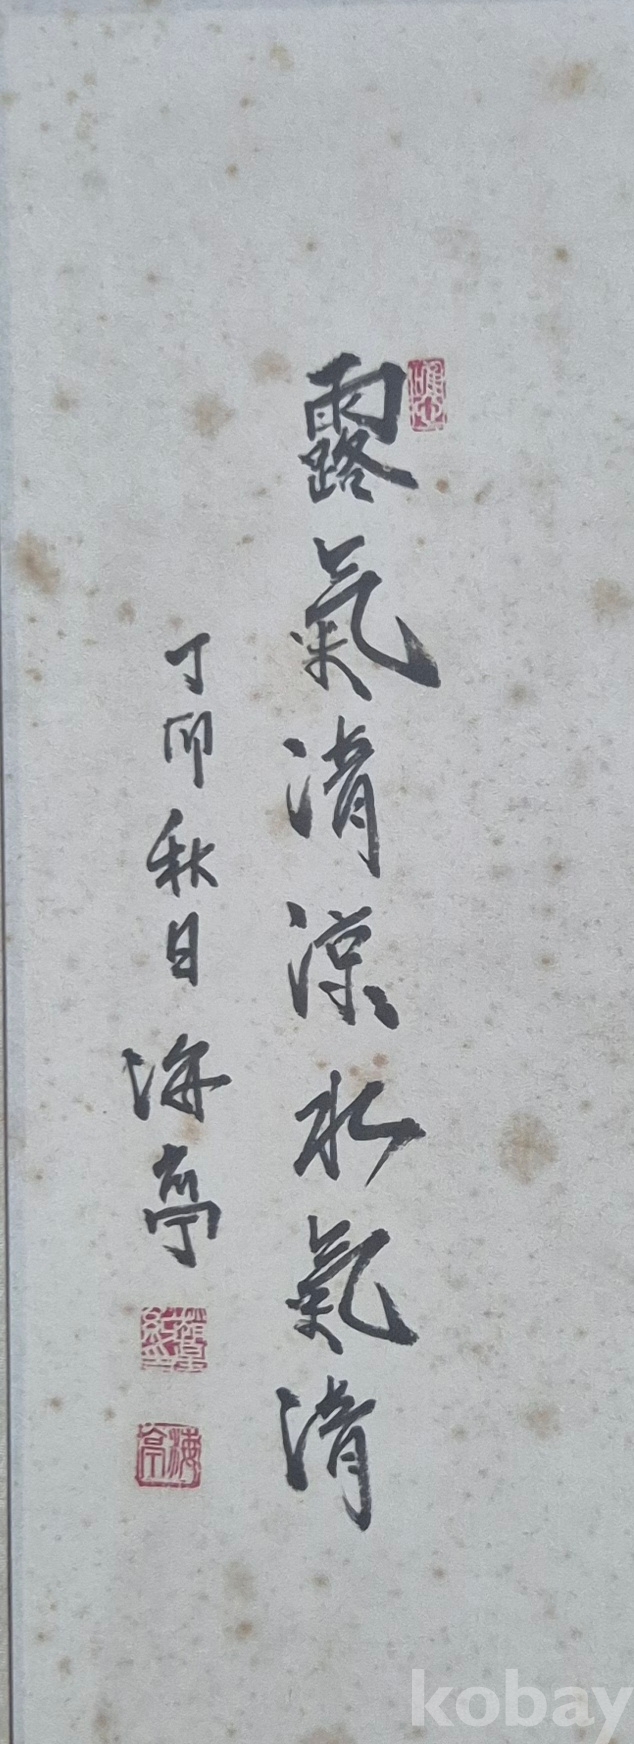 露氣清涼水氣清
丁卯秋日 海亭
海亭
kobay